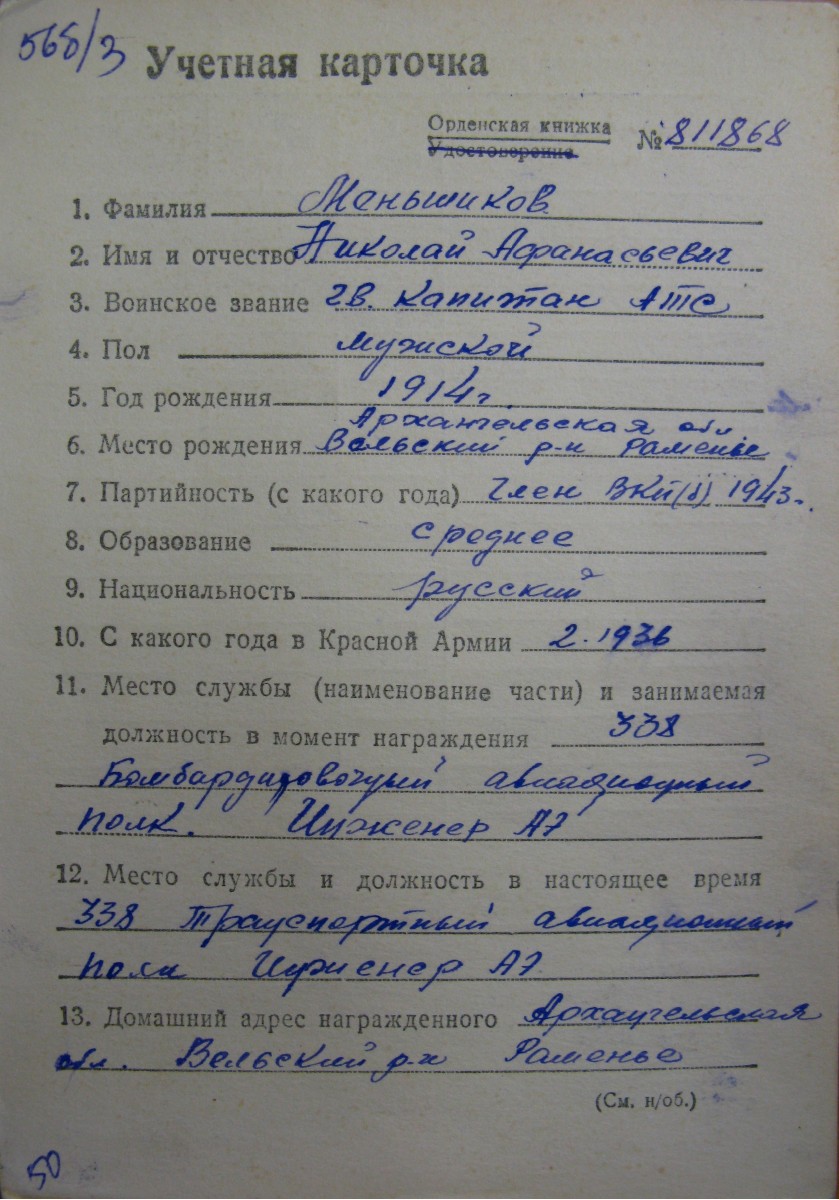 565/3
Учетная карточка
Орденская книжка
Удостоверение № 811868
1. Фамилия Меньшиков
2. Имя и отчество Николай Афанасьевич
3. Воинское звание гв. капитан АТС
4. Пол мужской
5. Год рождения 1914 г
Архангельская обл
6. Место рождения Вельский р-н Раменье
7. Партийность (с какого года) член ВКП(б) 1943 г.
8. Образование среднее
9. Национальность русский
10. С какого года в Красной Армии 2.1936
11. Место службы (наименование части) и занимаемая
должность в момент награждения 338
Бомбардировочный авиационный
полк. Инженер АЭ
12. Место службы и должность в настоящее время
338 Транспортный авиационный
полк Инженер АЭ
13. Домашний адрес награжденного Архангельская
обл. Вельский р-н Раменье
(См. н/об.)
50